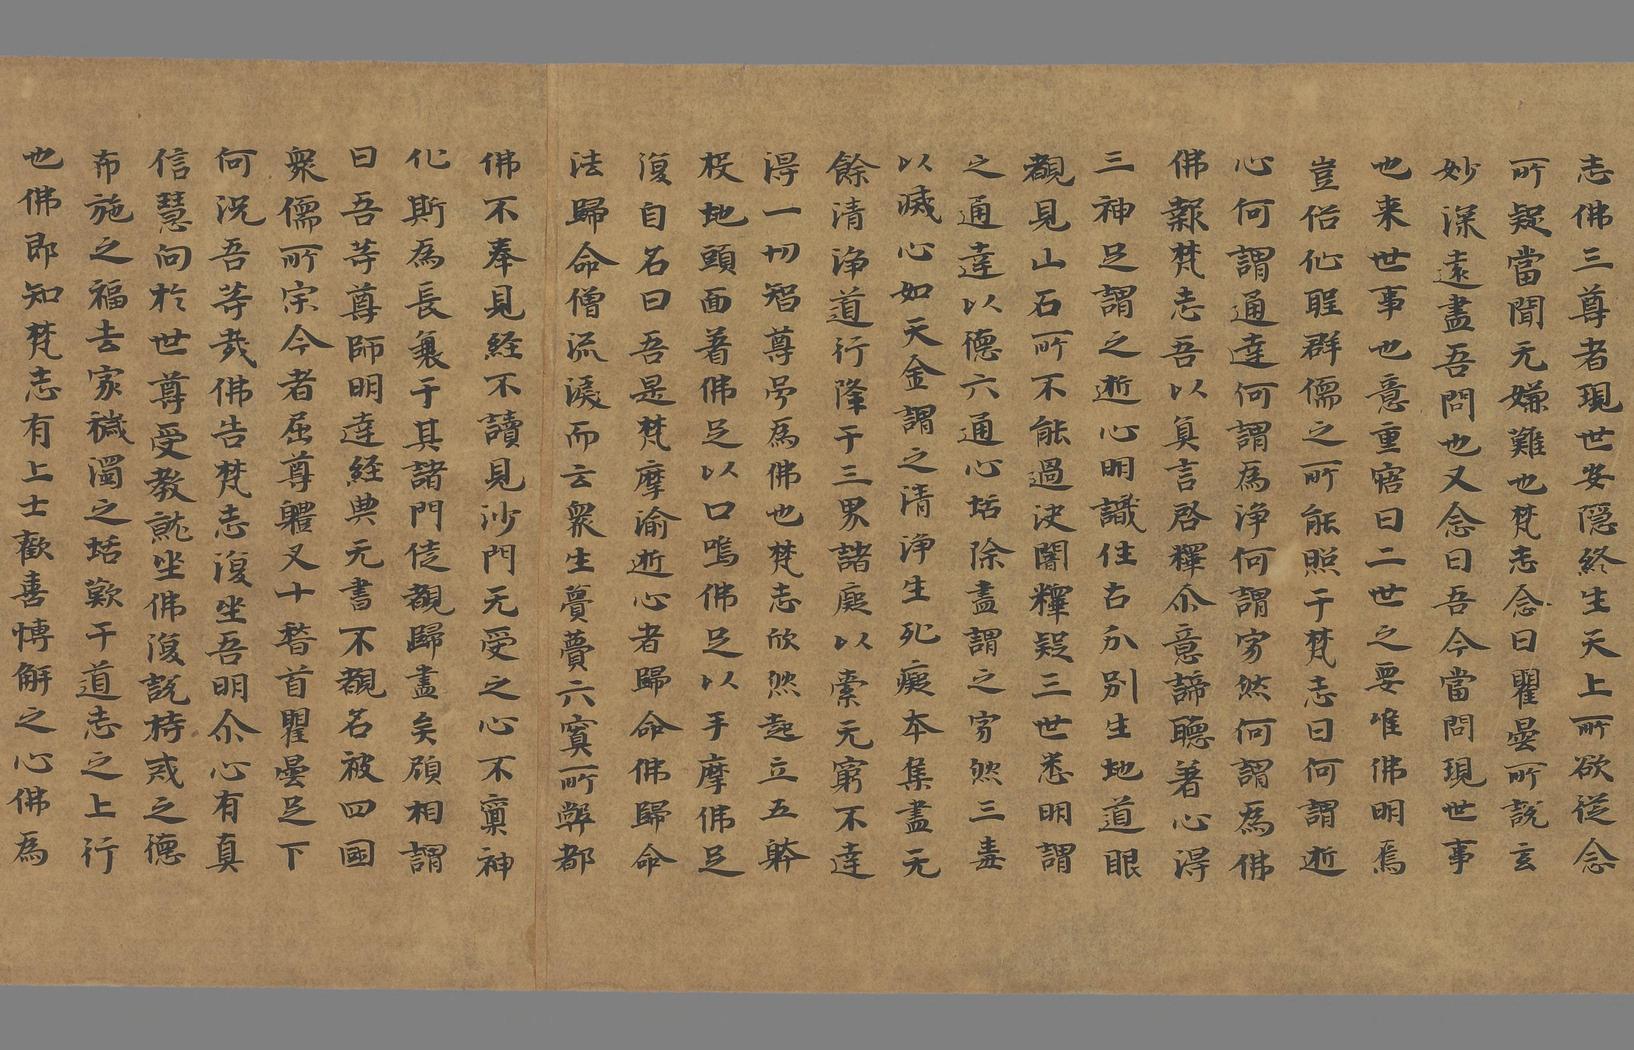 志佛三尊者現世安隱終生天上所欲從念
所疑當聞无嫌難也梵志念曰瞿曇所說玄
妙深遠盡吾問也又念曰吾今當問現世事
也来世事也意重寤曰二世之要唯佛明焉
豈俗他聖群儒之所能照于梵志曰何謂逝
心何謂通達何謂為淨何謂穷然何謂為佛
佛報梵志吾以真言啓釋尒意諦聽著心得
三神足謂之逝心明識往古分别生地道眼
覩見山石所不能過决闇釋疑三世悉明謂
之通達以德六通心垢除盡謂之穷然三毒
以滅心如天金謂之清淨生死癡本集盡无
餘清淨道行降于三界諸處以索无窮不達
得一切智尊号為佛也梵志欣然起立五躰
投地頭面著佛足以口嗚佛足以手摩佛足
復自名曰吾是梵摩渝逝心者歸命佛歸命
法歸命僧流淚而云衆生夢夢六冥所弊都
佛不奉見経不讀見沙門无受之心不稟神
化斯為長衰于其諸門徒覩歸盡矣頋相謂
曰吾䒭尊師明達経典无書不覩名被四國
衆儒所宗今者屈尊軆叉十䭫首瞿曇足下
何況吾䒭㦲佛告梵志復坐吾明尒心有真
信慧向於世尊受教就坐佛復説持戒之德
布施之福去家穢濁之垢歎干道志之上行
也佛即知梵志有上士歡喜愽解之心佛為